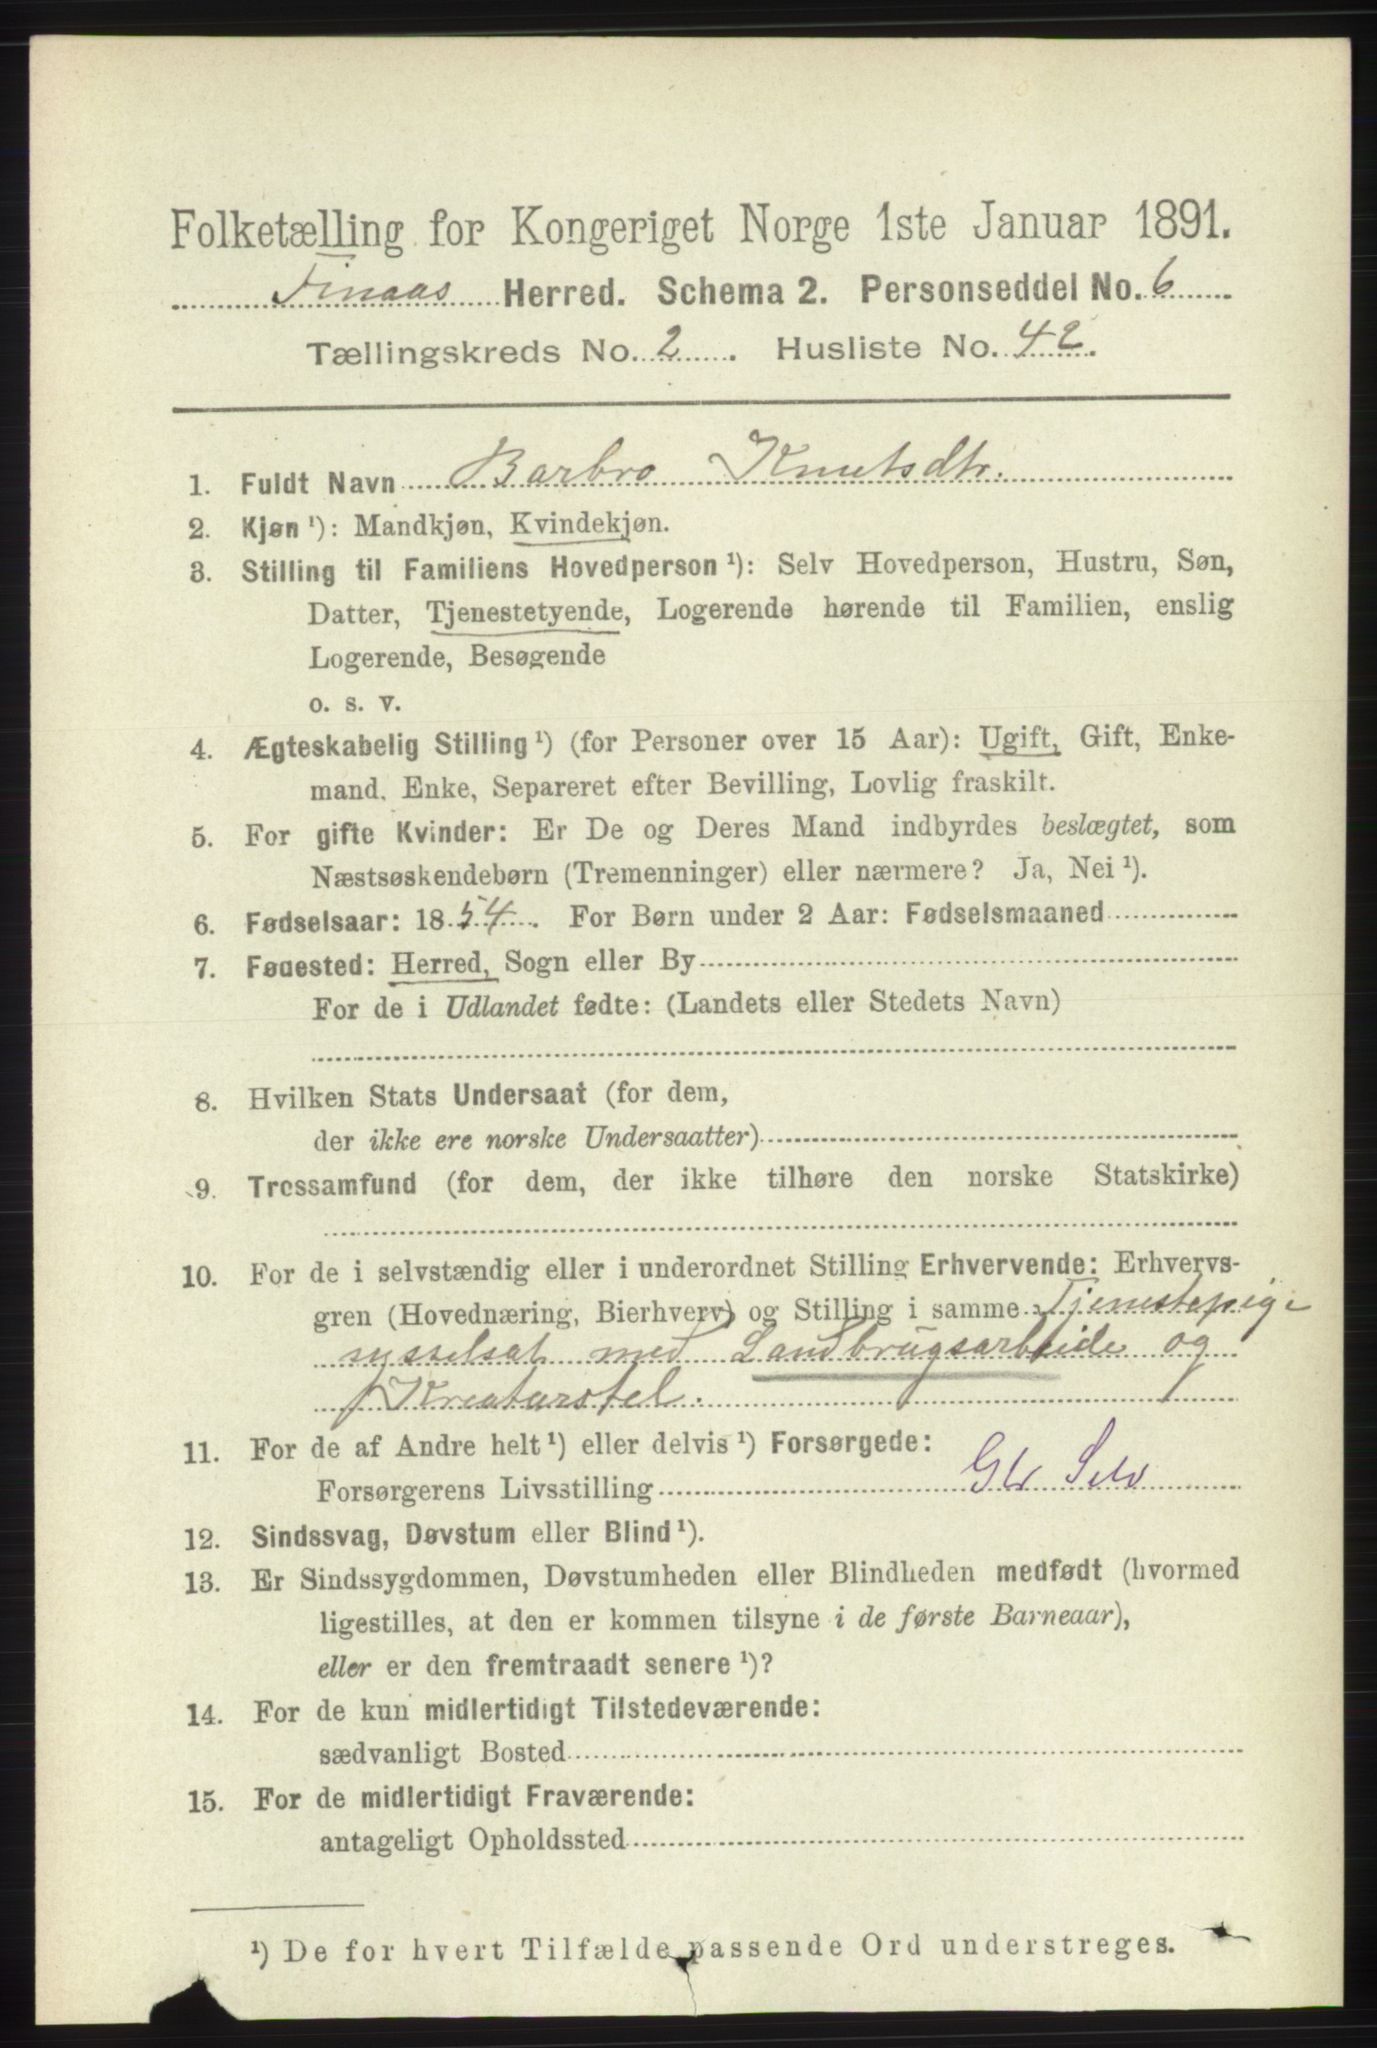 Folketælling for Kongeriget Norge 1ste Januar 1891.
Finaas Herred. Schema 2. Personseddel No. 6
Tællingskreds No. 2. Husliste No. 42.
1. Fuldt Navn Barbro Knutsdtr.
2. Kjøn ¹): Mandkjøn, Kvindekjøn.
3. Stilling til Familiens Hovedperson ¹): Selv Hovedperson, Hustru, Søn,
Datter, Tjenestetyende, Logerende hørende til Familien, enslig
Logerende, Besøgende
o. s. v.
4. Ægteskabelig Stilling ¹) (for Personer over 15 Aar): Ugift, Gift, Enke-
mand, Enke, Separeret efter Bevilling, Lovlig fraskilt.
5. For gifte Kvinder: Er De og Deres Mand indbyrdes beslægtet, som
Næstsøskendebørn (Tremenninger) eller nærmere? Ja, Nei ¹).
6. Fødselsaar: 1854. For Børn under 2 Aar: Fødselsmaaned
7. Føuested: Herred, Sogn eller By
For de i Udlandet fødte: (Landets eller Stedets Navn)
8. Hvilken Stats Undersaat (for dem,
der ikke ere norske Undersaatter)
9. Trossamfund (for dem, der ikke tilhøre den norske Statskirke)
10. For de i selvstændig eller i underordnet Stilling Erhvervende: Erhvervs-
gren (Hovednæring, Bierhverv) og Stilling i samme Tjenestepige
sysselsat med Landbrugsarbeide og
Kreaturstel.
11. For de af Andre helt ¹) eller delvis ¹) Forsørgede:
Forsørgerens Livsstilling Selv
12. Sindssvag, Døvstum eller Blind ¹).
13. Er Sindssygdommen, Døvstumheden eller Blindheden medfødt (hvormed
ligestilles, at den er kommen tilsyne i de første Barneaar),
eller er den fremtraadt senere ¹)?
14. For de kun midlertidigt Tilstedeværende:
sædvanligt Bosted
15. For de midlertidigt Fraværende:
antageligt Opholdssted
¹) De for hvert Tilfælde passende Ord understreges.